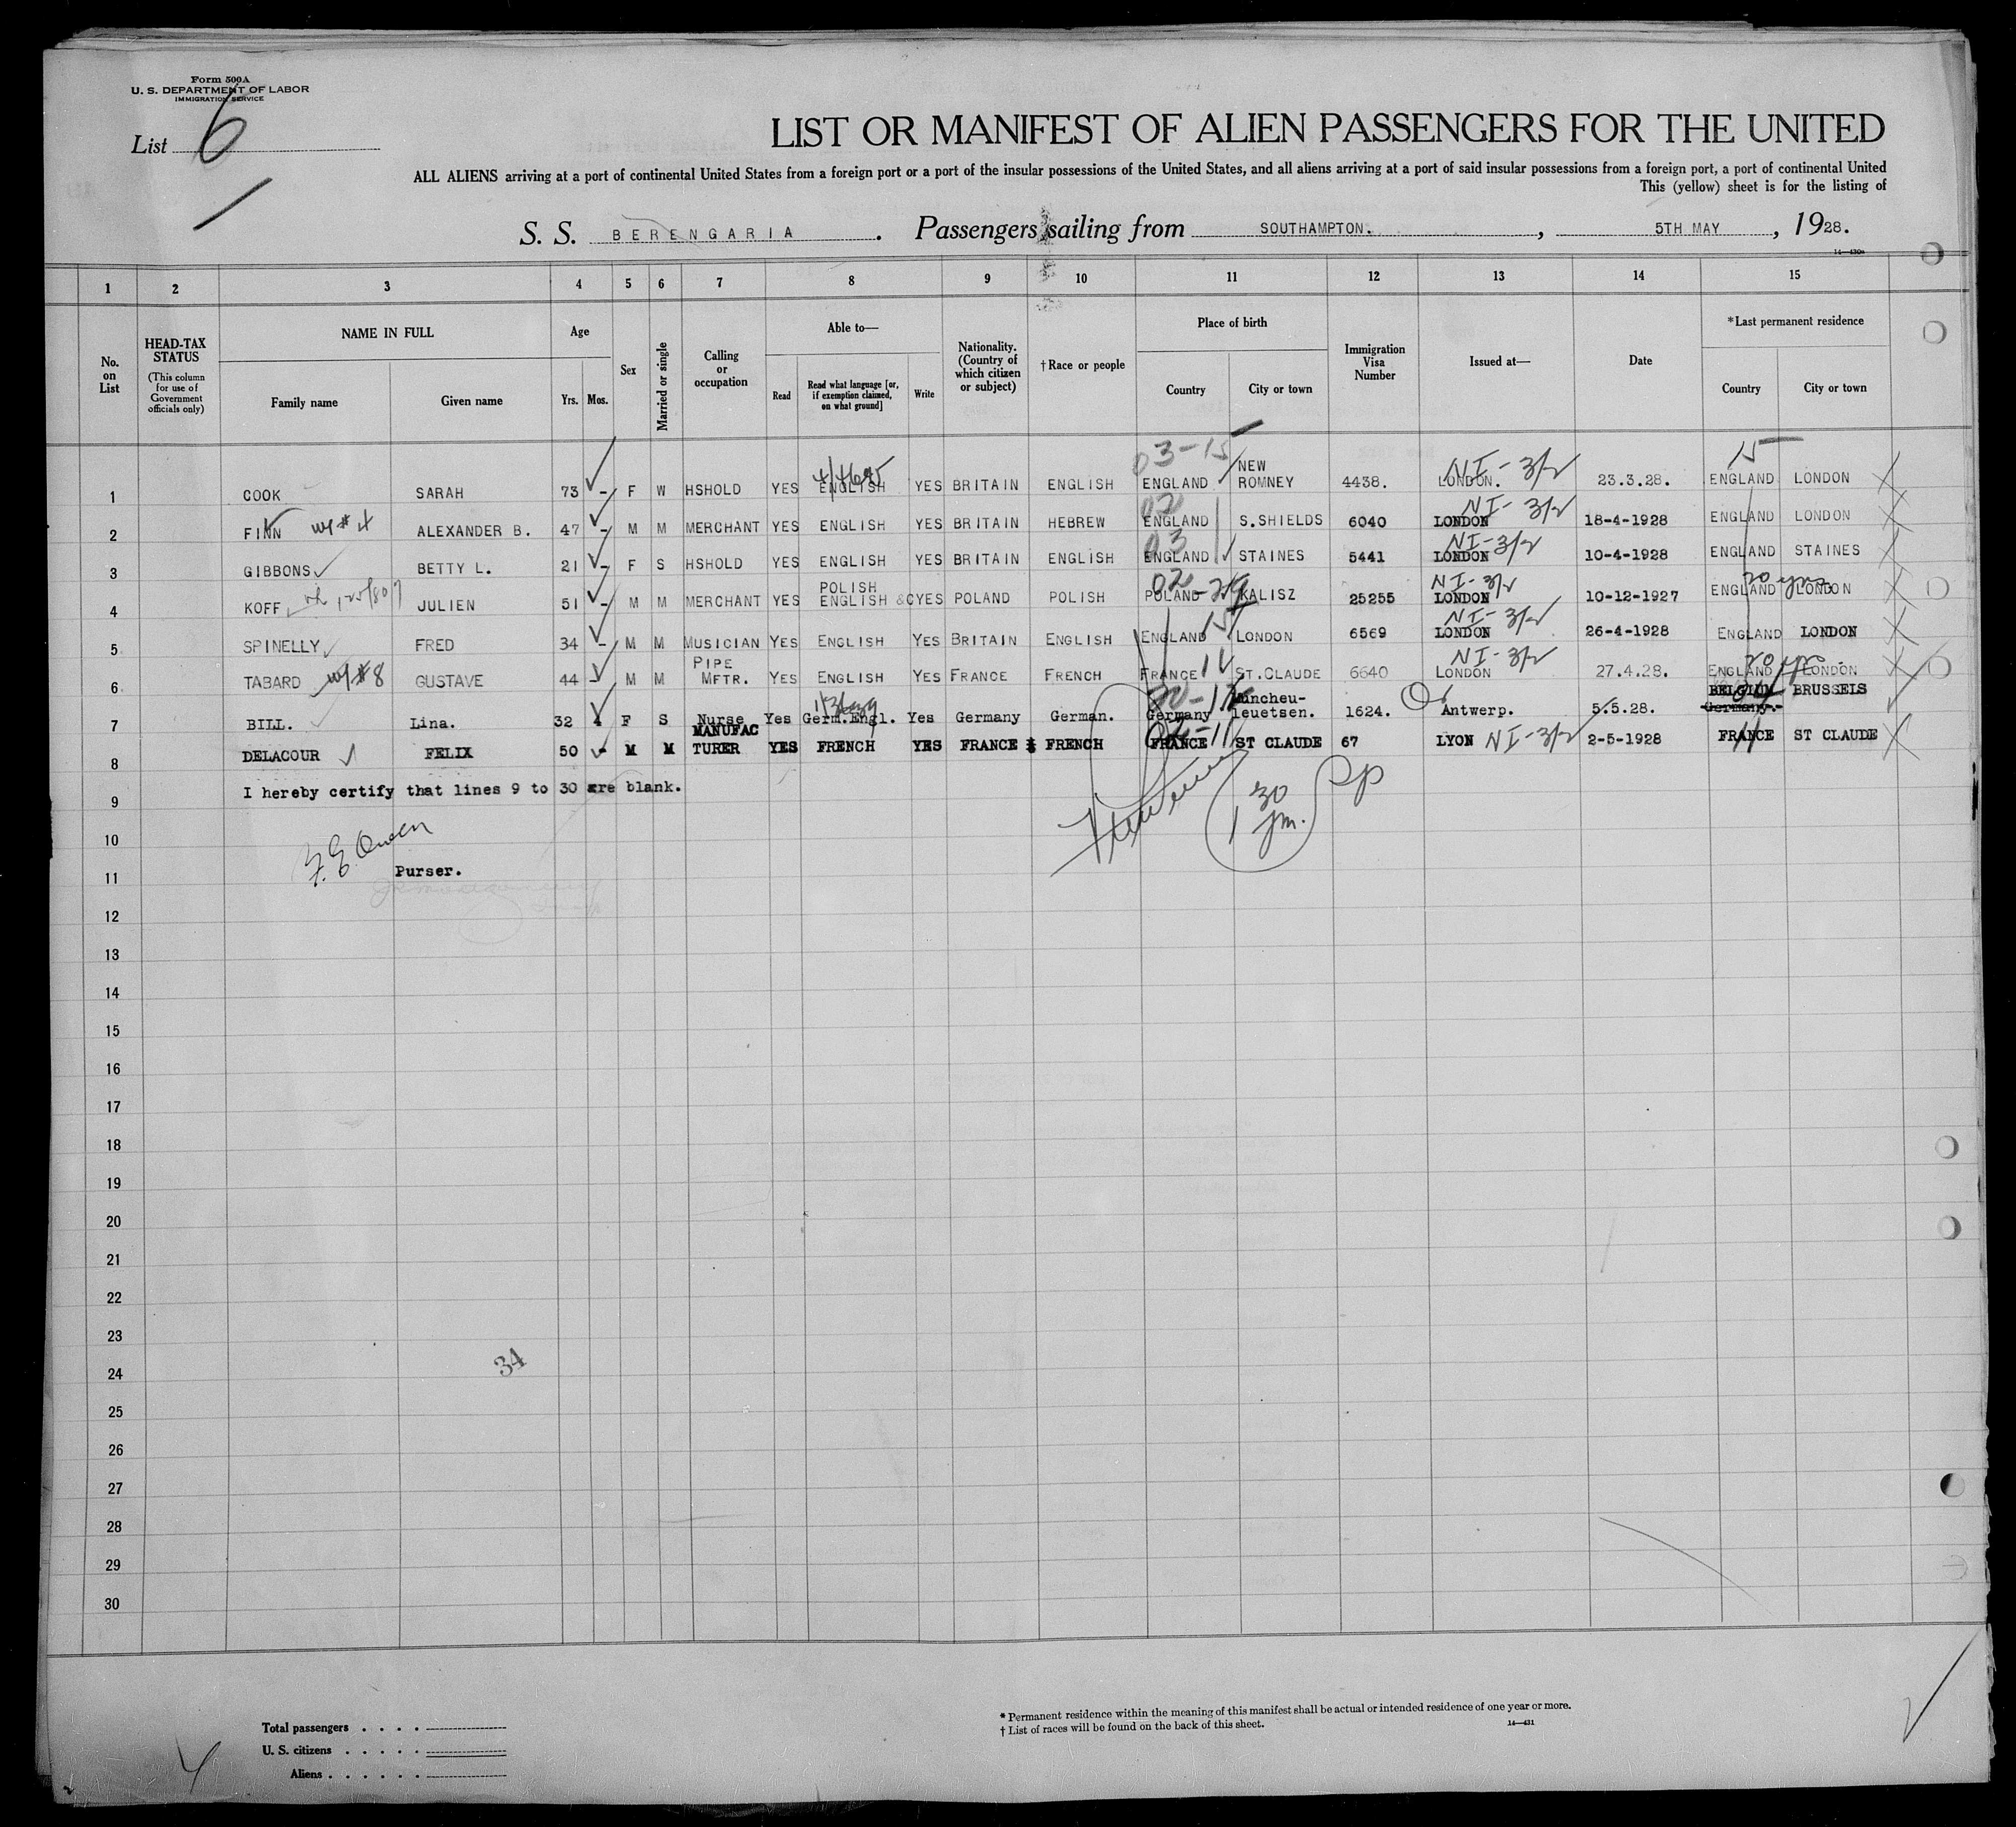 Form 500A
U. S. DEPARTMENT OF LABOR
IMMIGRATION SERVICE
List 6
LIST OR MANIFEST OF ALIEN PASSENGERS FOR THE UNITED
ALL ALIENS arriving at a port of continental United States from a foreign port or a port of the insular possessions of the United States, and all aliens arriving at a port of said insular possessions from a foreign port, a port of continental United
This (yellow) sheet is for the listing of
S. S. BERENGARIA. Passengers sailing from SOUTHAMPTON., 5TH MAY, 1928.
14—430a
1 2 3 4 5 6 7 8 9 10 11 12 13 14 15
No. on List
HEAD-TAX STATUS
(This column for use of Government officials only)
NAME IN FULL
Family name Given name
Age
Yrs. Mos.
Sex
Married or single
Calling or occupation
Able to—
Read
Read what language [or, if exemption claimed, on what ground]
Write
Nationality. (Country of which citizen or subject)
† Race or people
Place of birth
Country City or town
Immigration Visa Number
Issued at—
Date
*Last permanent residence
Country City or town
03-15 15
1 COOK SARAH 73 - F W HSHOLD YES ENGLISH YES BRITAIN ENGLISH ENGLAND NEW ROMNEY 4438. LONDON. NI-3/2 23.3.28. ENGLAND LONDON
2 FINN w/#4 ALEXANDER B. 47 - M M MERCHANT YES ENGLISH YES BRITAIN HEBREW 02 ENGLAND S.SHIELDS 6040 LONDON NI-3/2 18-4-1928 ENGLAND LONDON
3 GIBBONS BETTY L. 21 - F S HSHOLD YES ENGLISH YES BRITAIN ENGLISH 03 ENGLAND STAINES 5441 LONDON NI-3/2 10-4-1928 ENGLAND STAINES
4 KOFF JULIEN 51 - M M MERCHANT YES POLISH ENGLISH & YES POLAND POLISH 02-29 POLAND KALISZ 25255 LONDON NI-3/2 10-12-1927 ENGLAND LONDON 20 yrs
5 SPINELLY FRED 34 - M M MUSICIAN YES ENGLISH YES BRITAIN ENGLISH ENGLAND 15 LONDON 6569 LONDON NI-3/2 26-4-1928 ENGLAND LONDON
6 TABARD w/#8 GUSTAVE 44 - M M PIPE MFTR. YES ENGLISH YES FRANCE FRENCH FRANCE 11 ST.CLAUDE 6640 LONDON NI-3/2 27.4.28. ENGLAND LONDON 20 yrs.
7 BILL. Lina. 32 F S Nurse Yes Germ.Engl. Yes Germany German. Germany Muncheu-leuetsen. 1624. Antwerp. 5.5.28. BELGIUM BRUSSELS Germany.-
8 DELACOUR FELIX 50 - M M MANUFACTURER YES FRENCH YES FRANCE FRENCH 02-11 FRANCE ST CLAUDE 67 LYON NI-3/2 2-5-1928 FRANCE 11 ST CLAUDE
9 I hereby certify that lines 9 to 30 are blank.
1 30 pm.
10 F. E. Owen
11 Purser.
12
13
14
15
16
17
18
19
20
21
22
23
24 34
25
26
27
28
29
30
Total passengers . . . .
U. S. citizens . . . . .
Aliens . . . . . .
* Permanent residence within the meaning of this manifest shall be actual or intended residence of one year or more.
† List of races will be found on the back of this sheet.
14—431